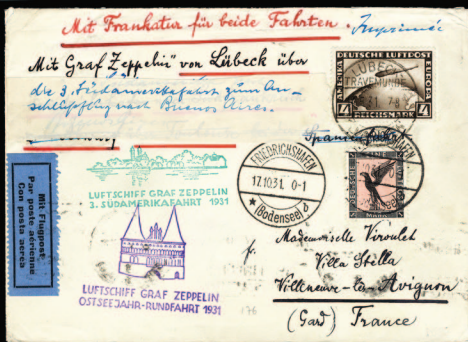 Mit Frankatur für beide Fahrten.
Imprimée
Mit Graf Zeppelin" von Lübeck über
die 3. Südamerikafahrt zum An-
schlußflug nach Buenos Aires.
DEUTSCHE LUFTPOST
EUROPA
AMERIKA
LÜBECK
TRAVEMÜNDE
REICHSMARK
Mit Flugpost
Par poste aérienne
Con posta aerea
LUFTSCHIFF GRAF ZEPPELIN
3. SÜDAMERIKAFAHRT 1931
FRIEDRICHSHAFEN
17.10.31. 0-1
(Bodensee) d
LUFTSCHIFF GRAF ZEPPELIN
OSTSEEJAHR-RUNDFAHRT 1931
Mademoiselle Viroulet
Villa Stella
Villeneuve-lès-Avignon
(Gard) France